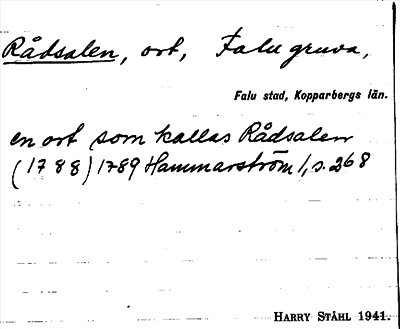 Rådsalen, ort, Falu gruva,
Falu stad, Kopparbergs län.
en ort som kallas Rådsalen
(1788) 1789 Hammarström 1, s. 268
HARRY STÅHL 1941.